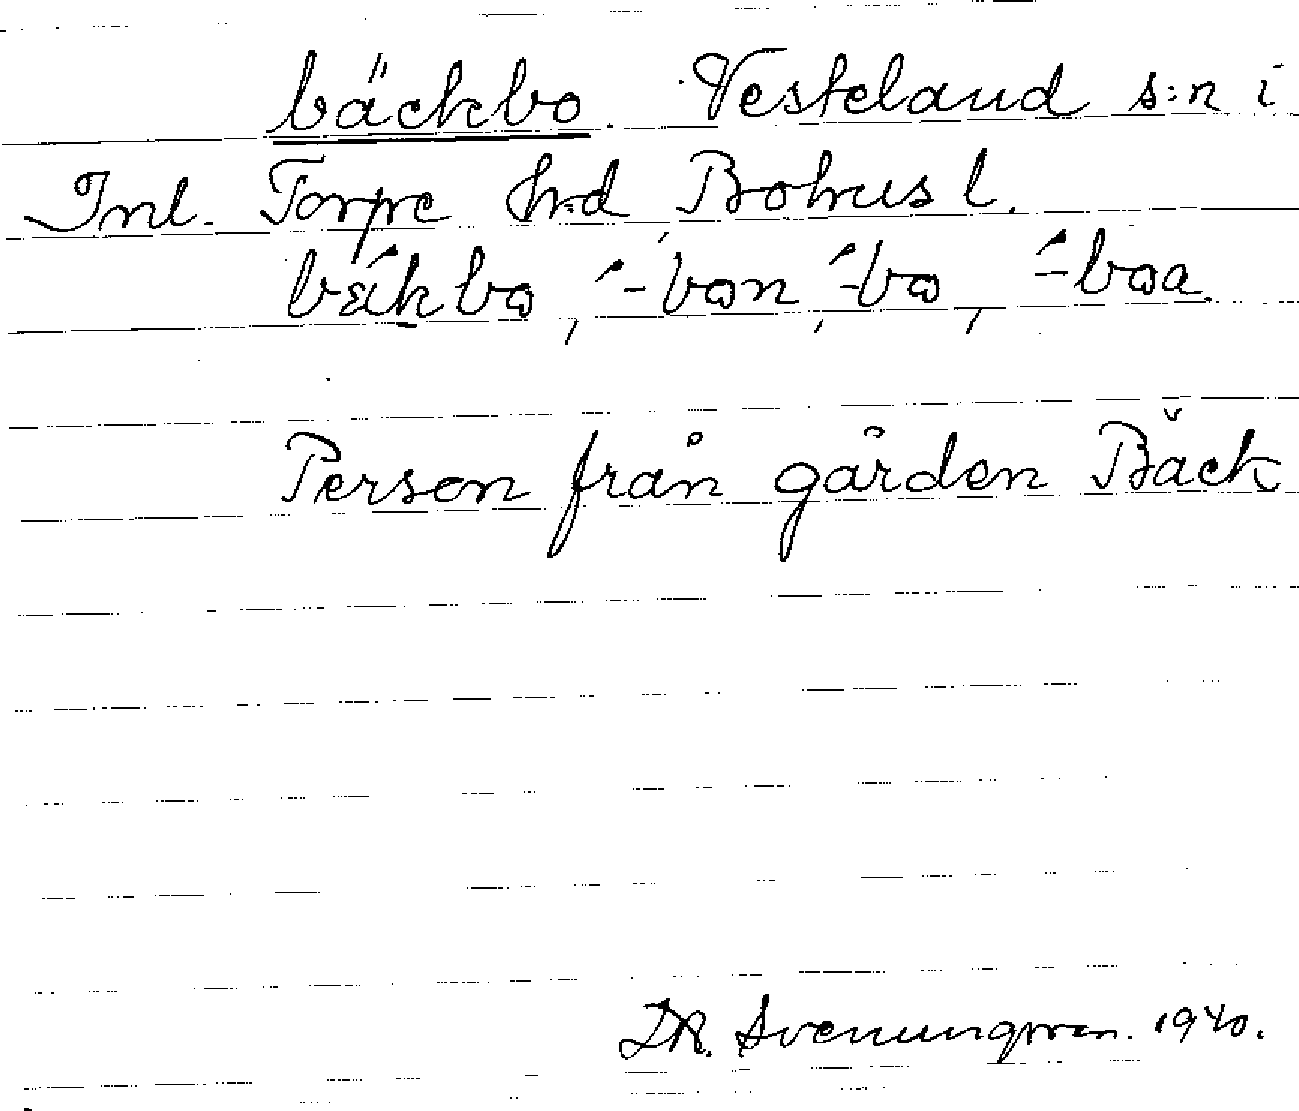 bäckbo. Vesteland s:n i
Inl. Torpe hd, Bohusl.
bækbo, ´-bon, ´-bo, ´-boa.
Person från gården Bäck
D.R. Svenungsson. 1940.